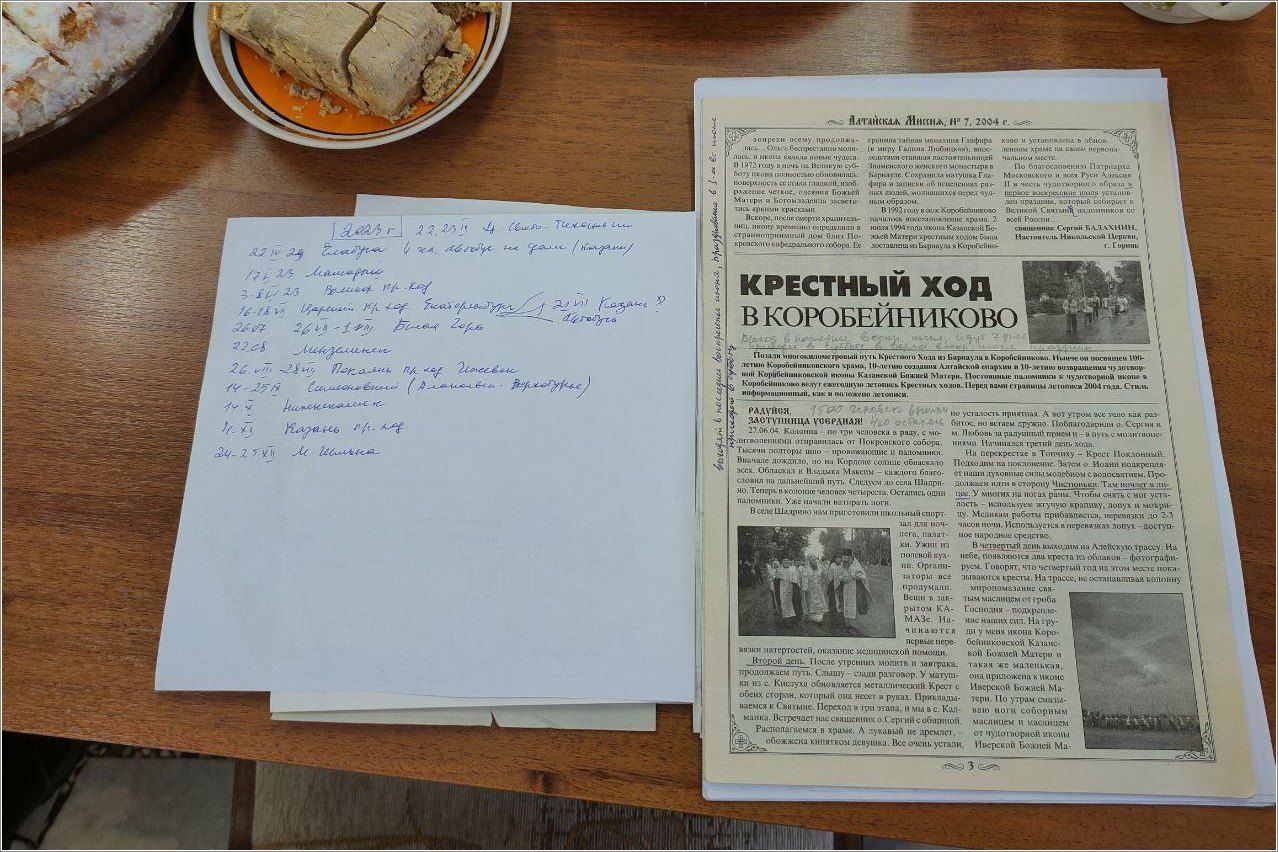 2023 г 22, 23 II Свято-Тихоновский
22 IV 24 Елабуга 4 чел. автобус на день (Казань)
17 I 23
3-8 VI 23 Великор. пр. ход
16-18 VII Царский пр. ход. Екатеринбург 21 VII Казань
26.07 26 VII - 1 VIII Белая Гора Автобус
22.08 Мензелинск
26 VIII - 28 VIII пр. ход
14-25 IX Симеоновский
14. X Нижнекамск
4. XI Казань пр. ход
24-25 XII
Алтайская Миссия, № 7, 2004 г.
вопреки всему продолжа-
лась... Ольга беспрестанно моли-
лась, и икона являла новые чудеса.
В 1972 году в ночь на Великую суб-
боту икона полностью обновилась:
поверхность ее стала гладкой, изоб-
ражение четкое, одеяния Божией
Матери и Богомладенца засвети-
лись яркими красками.
Вскоре, после смерти хранитель-
ниц, икону временно определили в
странноприимный дом близ Пок-
ровского кафедрального собора. Ее
хранила тайная монахиня Глафира
(в миру Галина Любицкая), впос-
ледствии ставшая настоятельницей
Знаменского женского монастыря в
Барнауле. Сохранила матушка Гла-
фира и записи об исцелениях раз-
ных людей, молившихся перед чуд-
ным образом.
В 1992 году в селе Коробейниково
началось восстановление храма. 2
июля 1994 года икона Казанской Бо-
жьей Матери крестным ходом была
доставлена из Барнаула в Коробейни-
ково и установлена в обнов-
ленном храме на своем первона-
чальном месте.
По благословению Патриарха
Московского и всея Руси Алексия
II в честь чудотворного образа в
первое воскресение июля установ-
лен праздник, который собирает к
Великой Святыне паломников со
всей России.
священник Сергий БАЛАХНИН,
Настоятель Никольской Церкви,
г. Горняк
КРЕСТНЫЙ ХОД
В КОРОБЕЙНИКОВО
идут 7 дней
Позади многокилометровый путь Крестного Хода из Барнаула в Коробейниково. Нынче он посвящен 100-
летию Коробейниковского храма, 10-летию создания Алтайской епархии и 10-летию возвращения чудотвор-
ной Коробейниковской иконы Казанской Божьей Матери. Постоянные паломники к чудотворной иконе в
Коробейниково ведут ежегодную летопись Крестных ходов. Перед вами страницы летописи 2004 года. Стиль
информационный, как и положено летописи.
РАДУЙСЯ, 1500 человек вышли
ЗАСТУПНИЦА УСЕРДНАЯ! 400 осталось
27.06.04. Колонна – по три человека в ряду, с мо-
литвопениями отправилась от Покровского собора.
Тысячи полторы шло – провожающие и паломники.
Вначале дождило, но на Кордоне солнце обласкало
всех. Обласкал и Владыка Максим – каждого благо-
словил на дальнейший путь. Следуем до села Шадри-
но. Теперь в колонне человек четыреста. Остались одни
паломники. Уже начали натирать ноги.
В селе Шадрино нам приготовили школьный спорт-
зал для ноч-
лега, палат-
ки. Ужин из
полевой кух-
ни. Органи-
заторы все
продумали.
Вещи в зак-
рытом КА-
МАЗе. На-
чинаются
первые пере-
вязки натертостей, оказание медицинской помощи.
Второй день. После утренних молитв и завтрака,
продолжаем путь. Слышу – сзади разговор. У матуш-
ки из с. Кислуха обновляется металлический Крест с
обеих сторон, который она несет в руках. Приклады-
ваемся к Святыне. Переход в три этапа, и мы в с. Кал-
манка. Встречает нас священник о.Сергий с общиной.
Располагаемся в храме. А лукавый не дремлет, –
обожжена кипятком девушка. Все очень устали,
но усталость приятная. А вот утром все тело как раз-
битое, но встаем дружно. Поблагодарили о. Сергия и
м. Любовь за радушный прием и – в путь с молитвопе-
ниями. Начинался третий день хода.
На перекрестке в Топчиху – Крест Поклонный.
Подходим на поклонение. Затем о. Иоанн подкрепля-
ет наши духовные силы молебном с водосвятием. Про-
должаем идти в сторону Чистюньки. Там ночлег в ли-
цее. У многих на ногах раны. Чтобы снять с ног уста-
лость – используем жгучую крапиву, лопух и мокри-
цу. Медикам работы прибавляется, перевязки до 2-3
часов ночи. Используется в перевязках лопух – доступ-
ное народное средство.
В четвертый день выходим на Алейскую трассу. На
небе, появляются два креста из облаков – фотографи-
руем. Говорят, что четвертый год на этом месте пока-
зываются кресты. На трассе, не останавливая колонну
миропомазание свя-
тым маслицем от гроба
Господня – подкрепле-
ние наших сил. На гру-
ди у меня икона Коро-
бейниковской Казанс-
кой Божьей Матери и
такая же маленькая,
она приложена к иконе
Иверской Божьей Ма-
тери. По утрам смазы-
ваю ноги соборным
маслицем и маслицем
от чудотворной иконы
Иверской Божьей Ма-
3